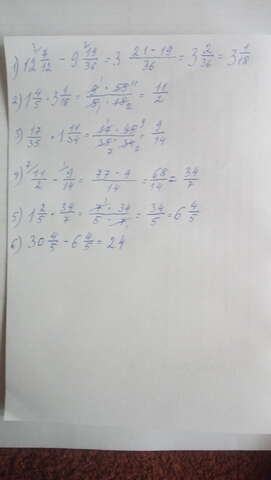 1) 12 7/12 - 9 19/36 = 3 21-19/36 = 3 2/36 = 3 1/18
2) 1 4/5 · 3 1/18 = 9 · 55/5 · 18 = 11/2
3) 17/35 · 1 11/34 = 17 · 45/35 · 34 = 9/14
4) 11/2 - 9/14 = 77-9/14 = 68/14 = 34/7
5) 1 2/5 · 34/7 = 7 · 34/5 · 7 = 34/5 = 6 4/5
6) 30 4/5 - 6 4/5 = 24